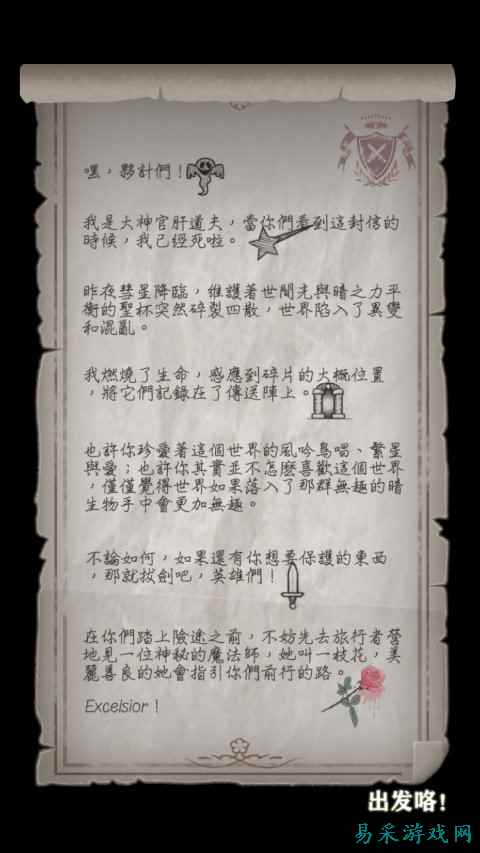 嘿，夥計們！
我是大神官肝道夫，當你們看到這封信的
時候，我已經死啦。
昨夜彗星降臨，維護著世間光與暗之力平
衡的聖杯突然碎裂四散，世界陷入了異變
和混亂。
我燃燒了生命，感應到碎片的大概位置
，將它們記錄在了傳送陣上。
也許你珍愛著這個世界的風吟鳥唱、繁星
與愛；也許你其實並不怎麼喜歡這個世界
，僅僅覺得世界如果落入了那群無趣的暗
生物手中會更加無趣。
不論如何，如果還有你想要保護的東西
，那就拔劍吧，英雄們！
在你們踏上險途之前，不妨先去旅行者營
地見一位神秘的魔法師，她叫一枝花，美
麗善良的她會指引你們前行的路。
Excelsior！
出发咯!
易采游戏网